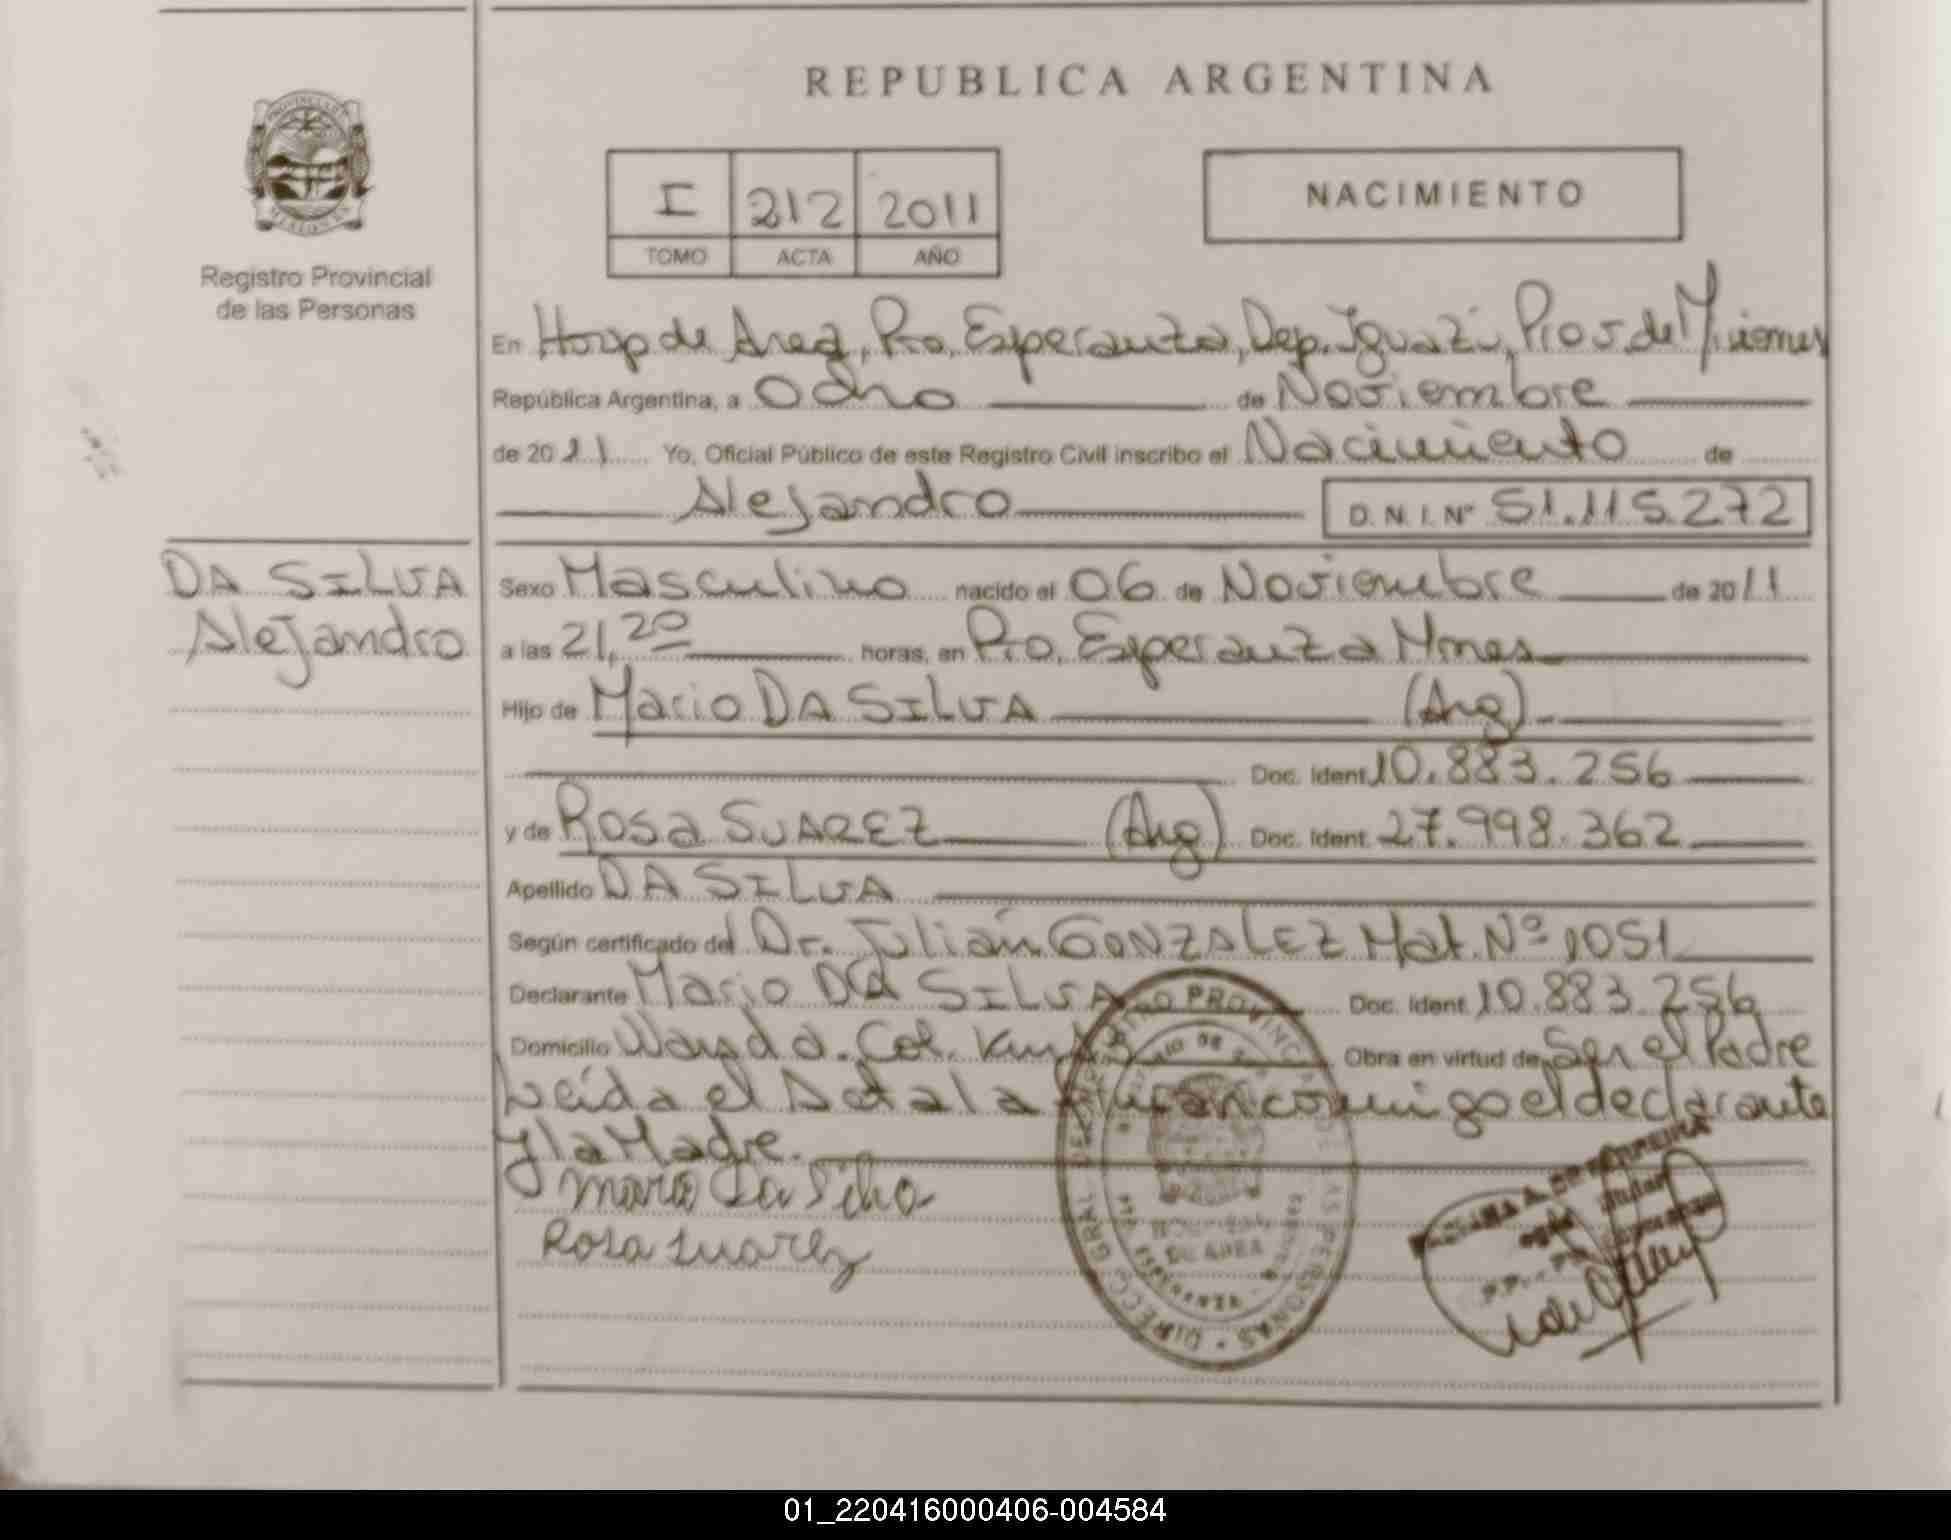 REPUBLICA ARGENTINA
I 212 2011
TOMO ACTA AÑO
NACIMIENTO
Registro Provincial
de las Personas
En Hosp de Area, Pto, Esperanza, Dep. Iguazú, Prov. de Misiones
República Argentina, a Ocho de Noviembre
de 2011 Yo, Oficial Público de este Registro Civil inscribo el Nacimiento de
Alejandro D.N.I.Nº 51.115.272
DA SILVA
Alejandro
Sexo Masculino nacido el 06 de Noviembre de 2011
a las 21,20 horas, en Pto, Esperanza Mnes
Hijo de Mario DA SILVA (Arg)
Doc. Ident 10.883.256
y de Rosa SUAREZ (Arg) Doc. Ident. 27.998.362
Apellido DA SILVA
Según certificado del Dr. Julián GONZALEZ Mat. Nº 1051
Declarante Mario DA SILVA Doc. Ident. 10.883.256
Domicilio Wanda. Col. Obra en virtud de Ser el Padre
Leída el Acta la firman conmigo el declarante
y la Madre.
Mario Da Silva
Rosa Suarez
HOSPITAL
DE AREA
01_220416000406-004584